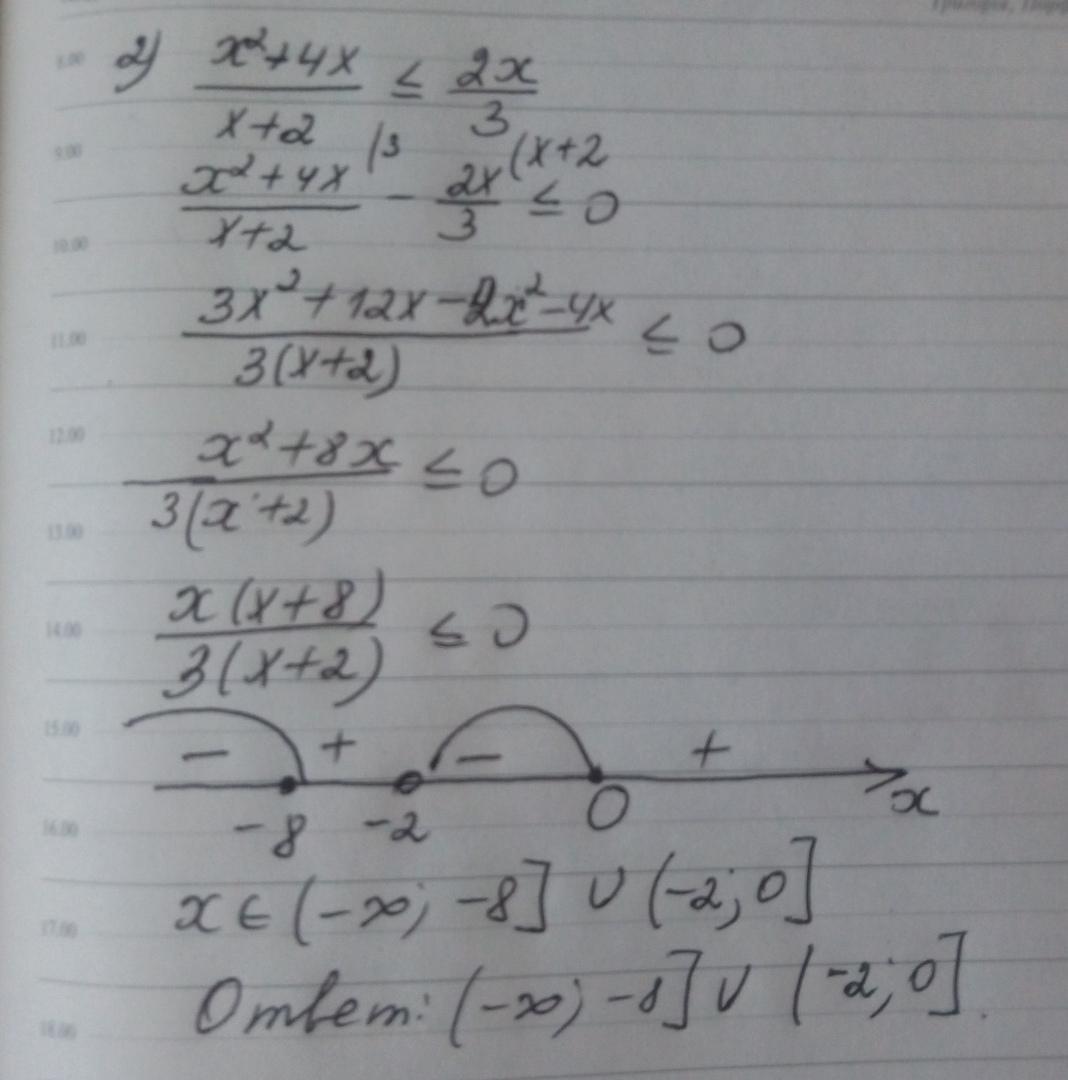 8.00
2) (x²+4x)/(x+2) ≤ 2x/3
9.00
(x²+4x)/(x+2) |3 - 2x/3 (x+2 ≤ 0
10.00
(3x²+12x-2x²-4x)/(3(x+2)) ≤ 0
11.00
12.00
(x²+8x)/(3(x+2)) ≤ 0
13.00
x(x+8)/(3(x+2)) ≤ 0
14.00
15.00
- + - +
-8 -2 0 x
16.00
x ∈ (-∞; -8] ∪ (-2; 0]
17.00
Ответ: (-∞; -8] ∪ (-2; 0].
18.00